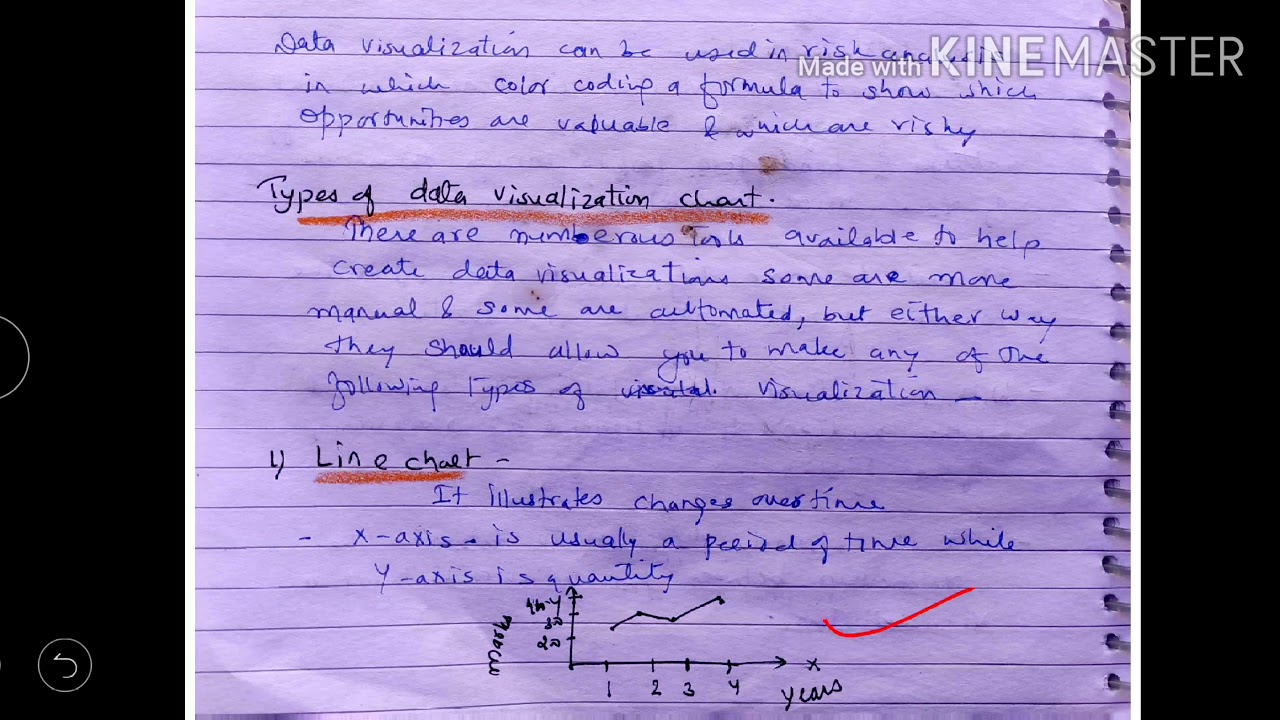 Data visualization can be used in risk analysis
Made with KINEMASTER
in which color coding a formula to show which
opportunities are valuable & which are risky
Types of data visualization chart.
There are numberous Tools available to help
create data visualizations some are more
manual & some are automated, but either way
they should allow you to make any of the
following Types of visualization -
1) Line chart -
It illustrates changes over time
- X-axis - is usually a period of time while
Y-axis is quantity
Y
30
20
X
1 2 3 4
years